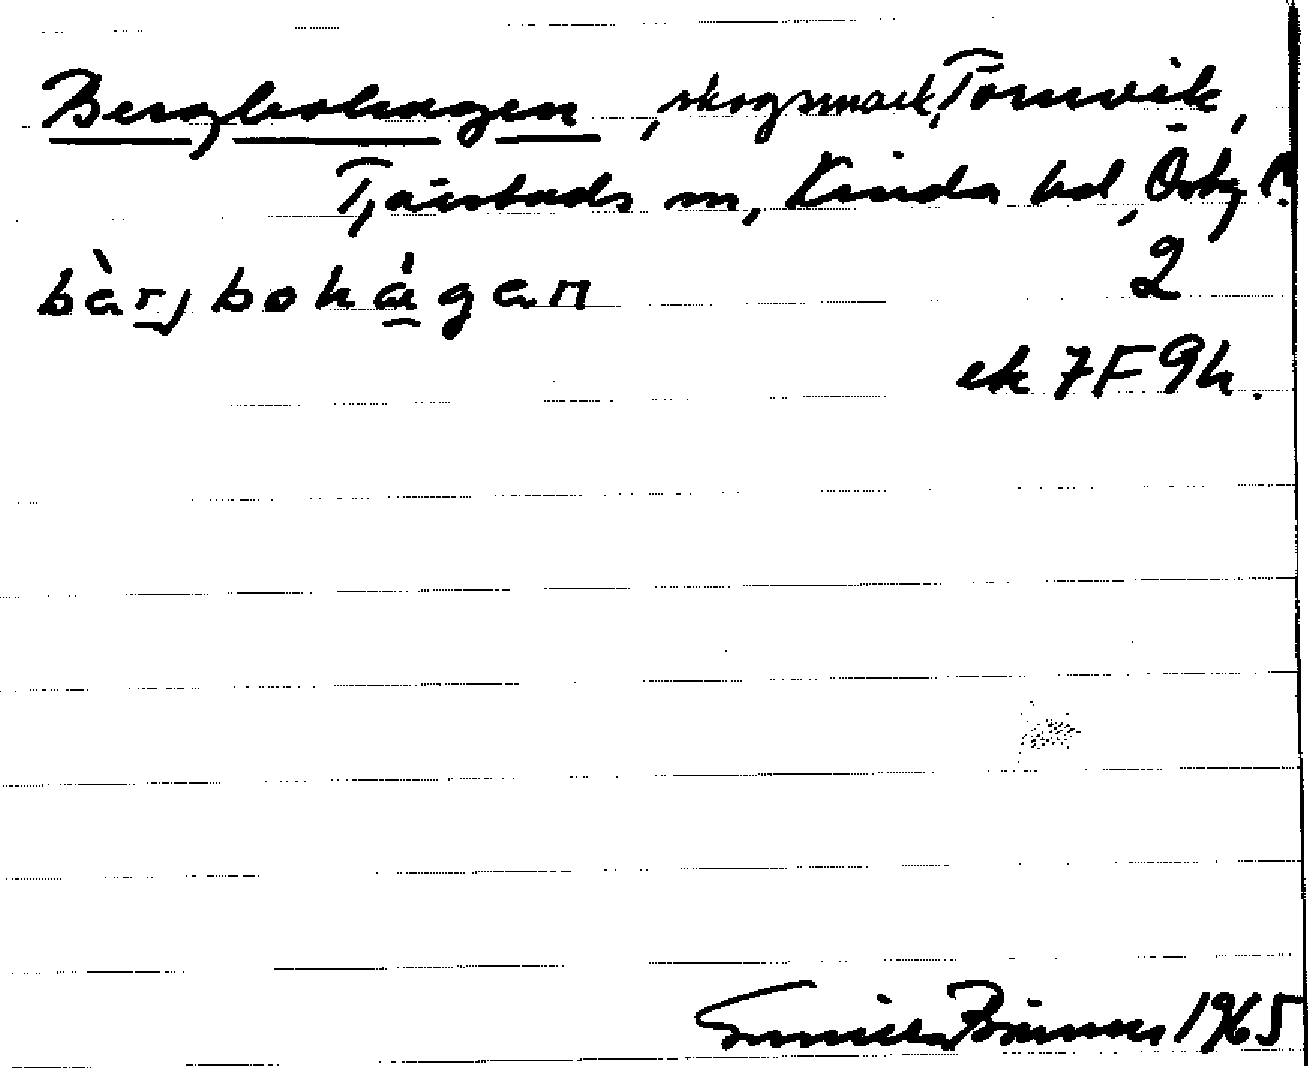 Bergbohagen, skogsmark, Törnvik,
Tjärstads sn, Kinda hd, Östg.
bàrjbohágen 2
ek 7F9h.
Gunilla 1965